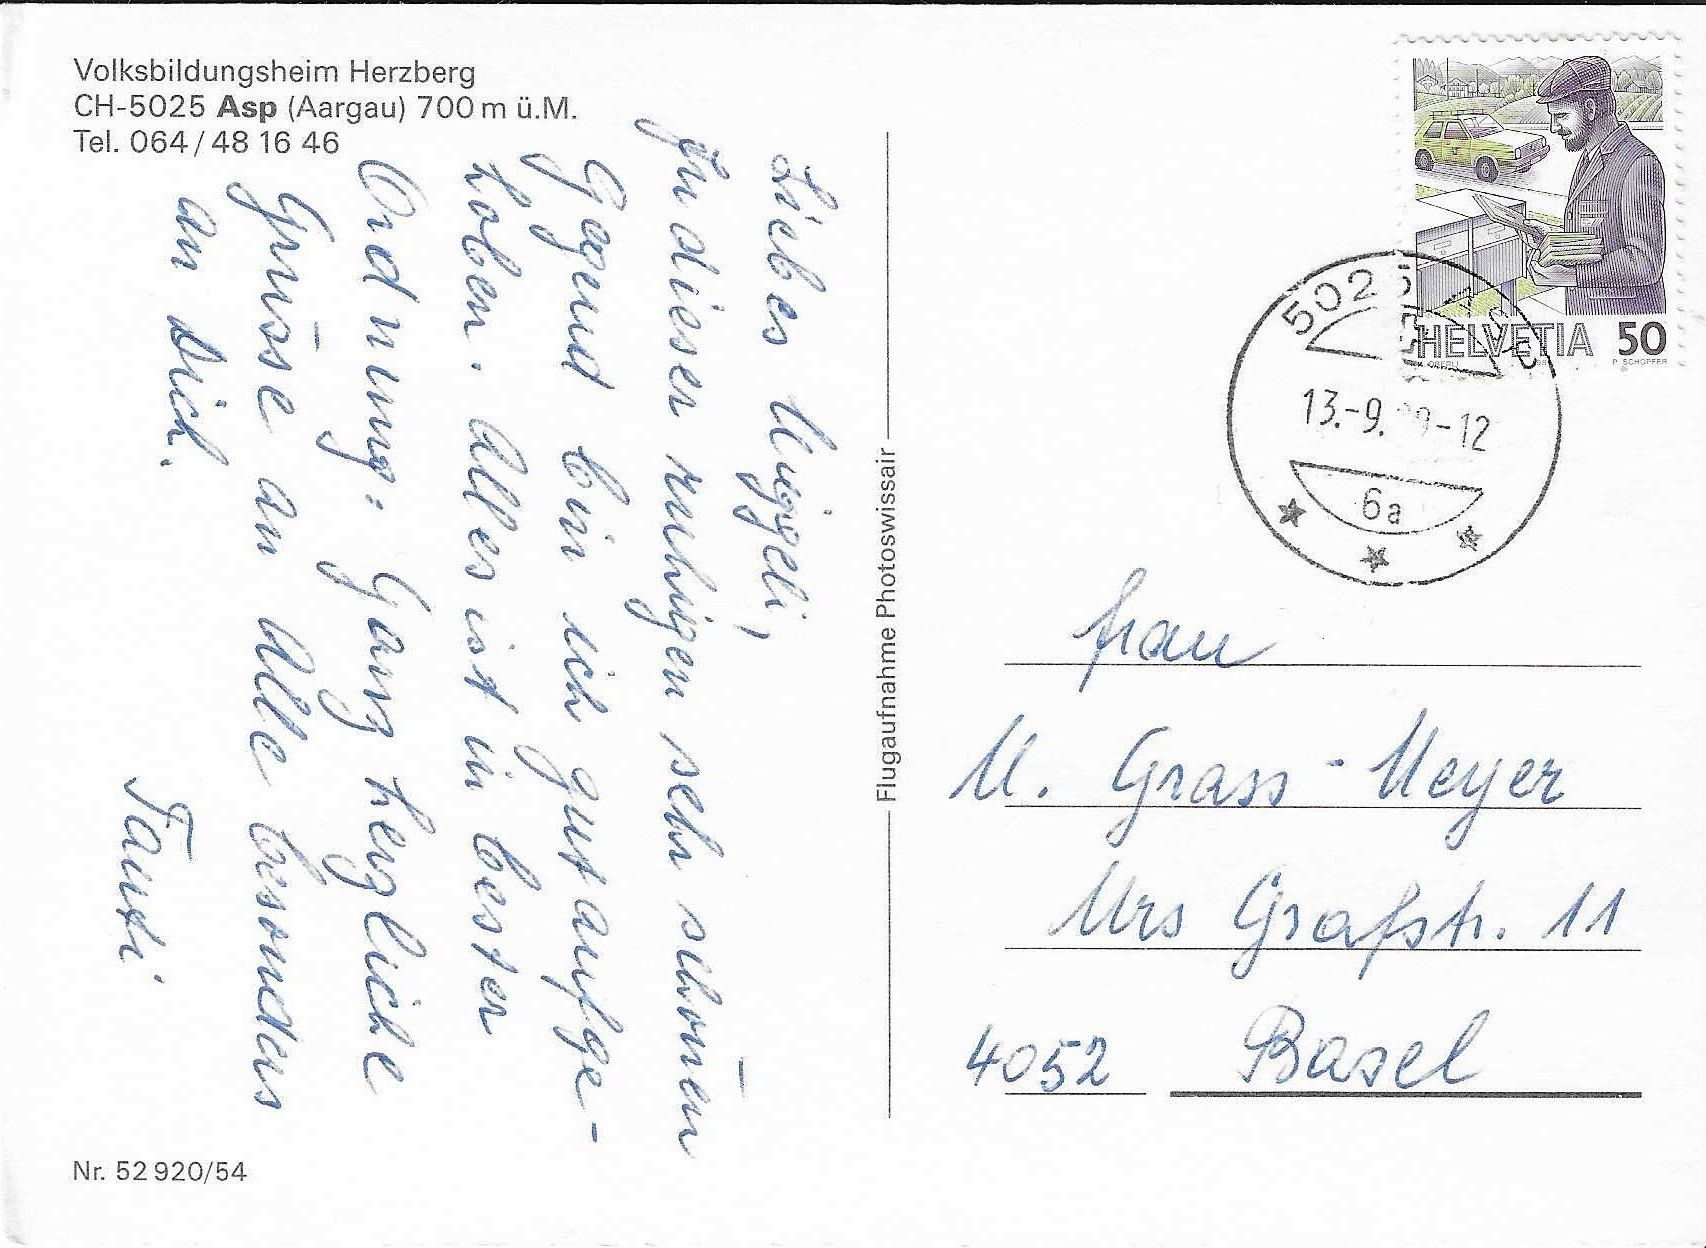 Volksbildungsheim Herzberg
CH-5025 Asp (Aargau) 700 m ü.M.
Tel. 064/48 16 46
Liebes Müggeli,
In dieser ruhigen sehr schönen
Gegend bin ich gut aufge-
hoben. Alles ist in bester
Ordnung. Ganz herzliche
Grüsse an Alle besonders
an Dich.
Tanti
Nr. 52 920/54
Flugaufnahme Photoswissair
HELVETIA 50
P. SCHOPFER
5025
13.-9. -12
6a
Frau
M. Grass-Meyer
Urs Grafstr. 11
4052 Basel